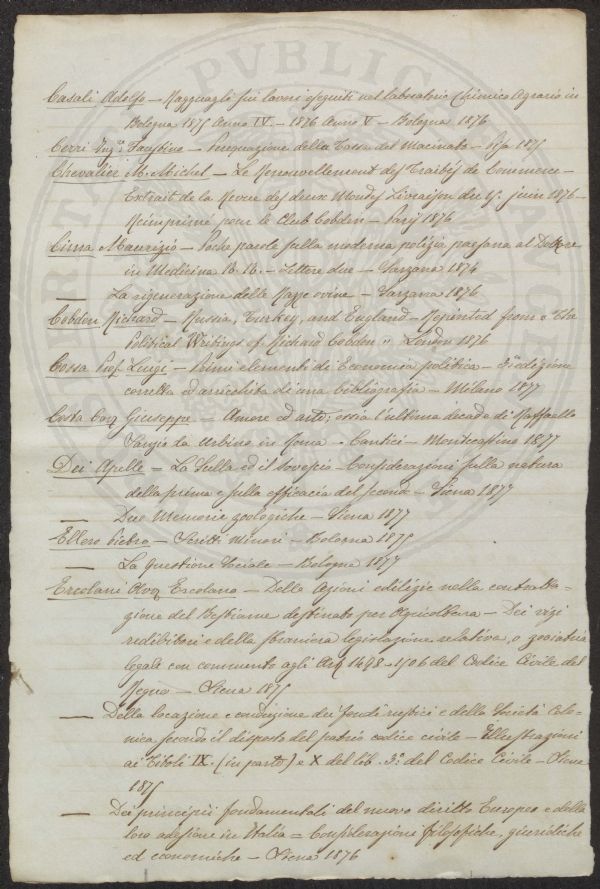 Casali Adolfo — Ragguagli sui lavori eseguiti nel laboratorio Chimico Agrario in
Bologna 1875 Anno IV. — 1876 Anno V — Bologna 1876
Cerri Ing.e Faustino — Perequazione della Tassa del Macinato — Pisa 1875
Chevalier M. Michel — Le Renouvellement des Traités de Commerce —
Extrait de la Revue des deux Mondes Livraison du 15. juin 1876 —
Réimprimé pour le Club Cobden — Paris 1876
Cima Maurizio — Poche parole sulla moderna polizia paesana al Dottore
in Medicina B. B. — Lettere due — Sarzana 1874
— La rigenerazione delle Razze ovine — Sarzana 1876
Cobden Richard — Russia, Turkey, and England — Reprinted from "The
Political Writings of Richard Cobden" London 1876
Cossa Prof. Luigi — Primi elementi di Economia politica — edizione
corretta ed arricchita di una bibliografia — Milano 1877
Costa Giuseppe — Amore ed arte; ossia l'ultima decade di Raffaello
Sanzio da Urbino in Roma — Cantici — Montecassino 1877
Dei Apelle — La Sulla ed il Sovescio — Considerazioni sulla natura
della prima e sulla efficacia del secondo — Siena 1877
— Due Memorie zoologiche — Siena 1877
Ellero Pietro — Scritti Minori — Bologna 1875
— La Questione Sociale — Bologna 1877
Ercolani Avv. Ercolano — Delle Azioni edilizie nella contratta-
zione del Bestiame destinato per Agricoltura — Dei vizi
redibitori e della straniera legislazione relativa, o zooiatria
legale con commento agli Art. 1498–1506 del Codice Civile del
Regno — Siena 1875
— Della locazione e conduzione dei fondi rustici e della Società Colo-
nica secondo il disposto del patrio codice civile — Illustrazioni
ai Titoli IX. (in parte) e X del lib. 3.o del Codice Civile — Siena
1875
— Dei principii fondamentali del nuovo diritto Europeo e della
loro adesione in Italia = Considerazione filosofiche, giuridiche
ed economiche — Siena 1876